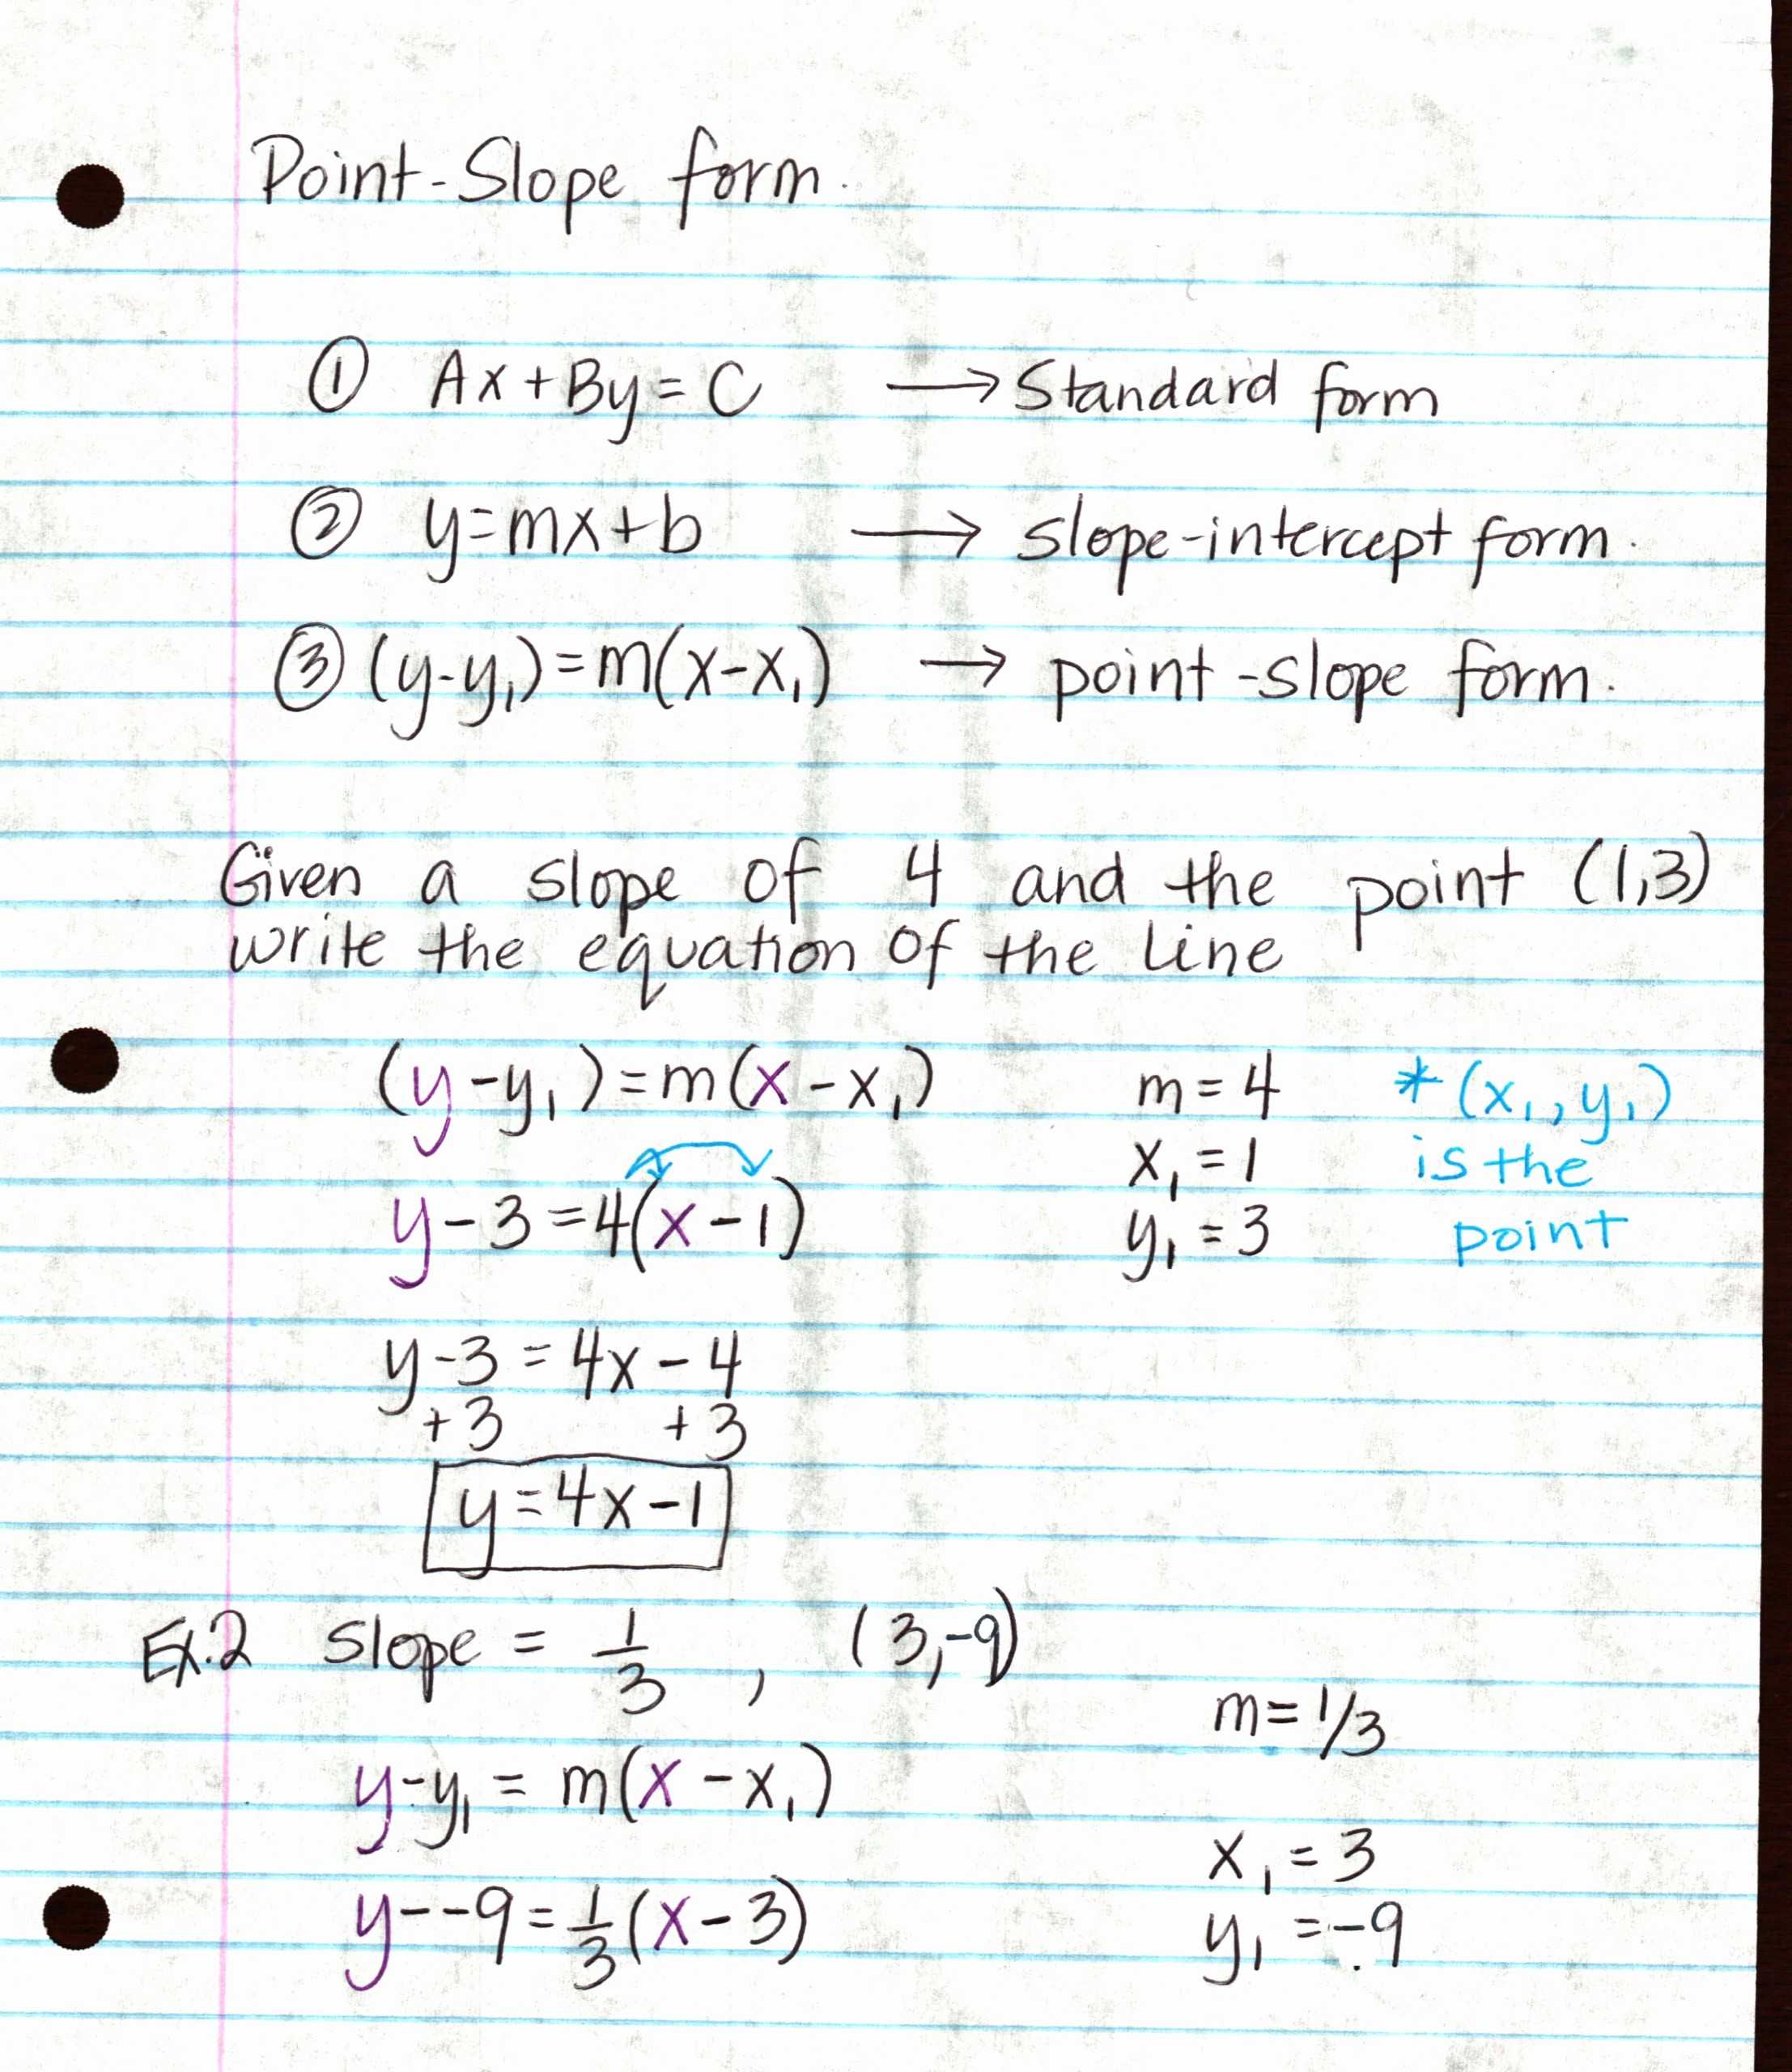 Point-Slope form.
① Ax + By = C → Standard form
② y = mx + b → slope-intercept form.
③ (y-y₁) = m(x-x₁) → point-slope form.
Given a slope of 4 and the point (1,3)
write the equation of the line
(y - y₁) = m(x - x₁) m = 4 * (x₁, y₁)
x₁ = 1 is the
y - 3 = 4(x - 1) y₁ = 3 point
y - 3 = 4x - 4
+3 +3
y = 4x - 1
Ex.2 Slope = 1/3 , (3,-9)
m = 1/3
y - y₁ = m(x - x₁)
x₁ = 3
y - -9 = 1/3 (x - 3) y₁ = -9